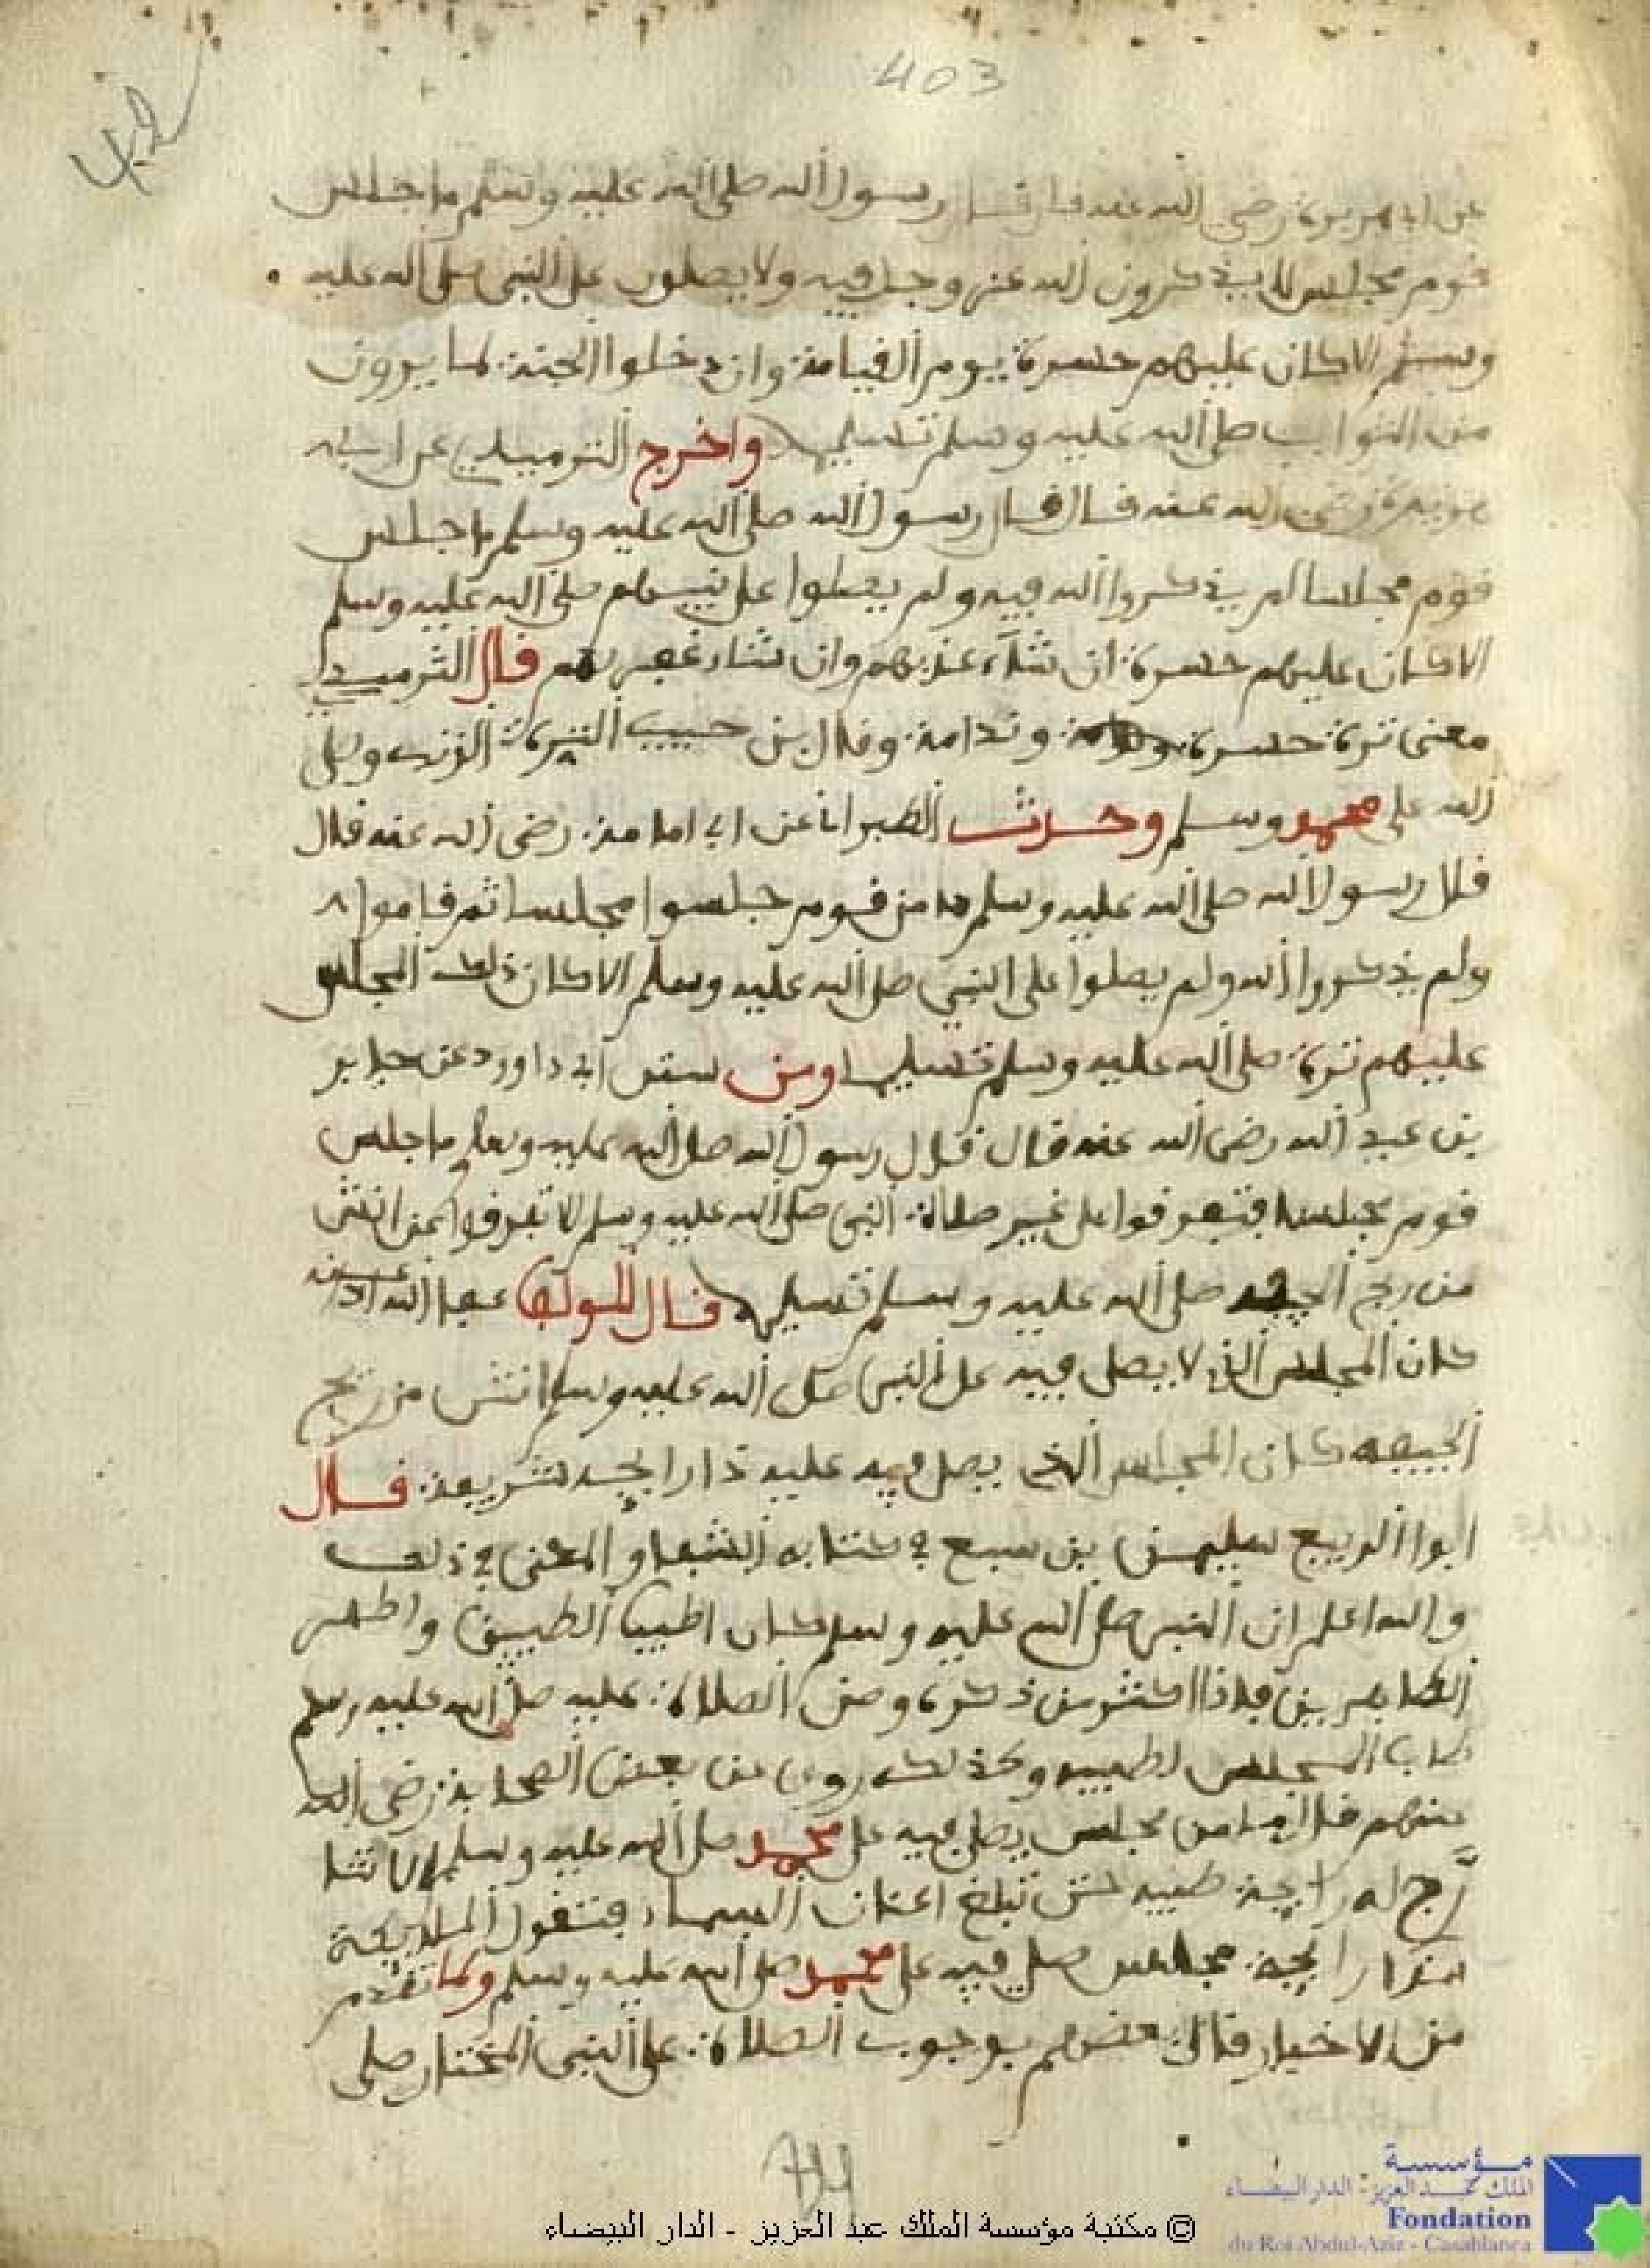 403
42
عن ابي هريرة رضي الله عنه قال قال رسول الله صلى الله عليه وسلم ما جلس
قوم مجلسا لا يذكرون الله عز وجل فيه ولا يصلون على النبي صلى الله عليه
وسلم الا كان عليهم حسرة يوم القيامة وان دخلوا الجنة لما يرون
من الثواب صلى الله عليه وسلم تسليما واخرج الترميذي عن ابي
هريرة رضي الله عنه قال قال رسول الله صلى الله عليه وسلم ما جلس
قوم مجلسا لم يذكروا الله فيه ولم يصلوا على نبيهم صلى الله عليه وسلم
الا كان عليهم حسرة ان شاء عذبهم وان شاء غفر لهم قال الترميذي
معنى ترة حسرة وندامة وقال بن حبيب الترة وصلى
الله على محمد وسلم وحدث الطبراني عن ابي امامة رضي الله عنه قال
قال رسول الله صلى الله عليه وسلم ما من قوم جلسوا مجلسا ثم قاموا
ولم يذكروا الله ولم يصلوا على النبي صلى الله عليه وسلم الا كان ذلك المجلس
عليهم ترة صلى الله عليه وسلم تسليما ومن سنن ابي داوود عن جابر
بن عبد الله رضي الله عنه قال قال رسول الله صلى الله عليه وسلم ما جلس
قوم مجلسا فتفرقوا على غير صلاة النبي صلى الله عليه وسلم الا تفرقوا عن انتن
من ريح الجيفه صلى الله عليه وسلم تسليما قال المولف عفا الله عنه
كان المجلس الذي لا يصلى فيه على النبي صلى الله عليه وسلم انتن من ريح
الجيفه كان المجلس الذي يصلى فيه عليه ذا رايحة شريفة قال
ابوا الربيع سليمن بن سبع في كتابه الشفا والمعنى في ذلك
والله اعلم ان النبي صلى الله عليه وسلم كان اطيب الطيبين واطهر
الطاهرين فاذا اكثر من ذكره ومن الصلاة عليه صلى الله عليه وسلم
طاب المجلس لطيبه وكذلك روي عن بعض الصحابة رضي الله
عنهم قال ما من مجلس يصلى فيه على محمد صلى الله عليه وسلم الا تتا
رج له رايحة طيبه حتى تبلغ اعنان السماء فتقول الملايكة
هذا رايحة مجلس صلي فيه على محمد صلى الله عليه وسلم ولما تقدم
من الاخبار قال بعضهم بوجوب الصلاة على النبي المختار صلى
© مكتبة مؤسسة الملك عبد العزيز - الدار البيضاء
مؤسسة
الملك عبد العزيز - الدار البيضاء
Fondation
du Roi Abdul-Aziz - Casablanca